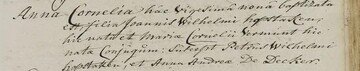 Anna Cornelia hac vigesima nona baptizata
est, filia Joannis Wilhelmi hopstaken,
hic nat: et Maria Cornelii Vermunt hic
nata Conjugum: Suscep: Petrus Wilhelmi
hopstaken, et Anna Andreæ De Decker.